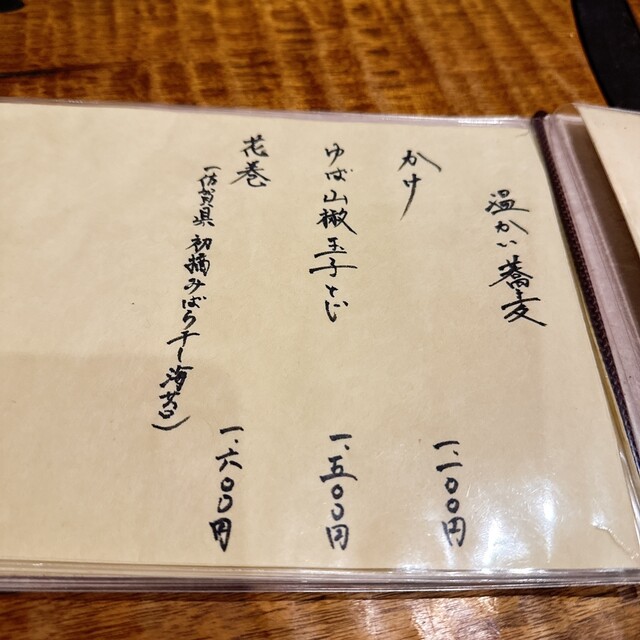 温かい蕎麦
かけ
一、一〇〇円
ゆば山椒玉子とじ
一、五〇〇円
花巻
(佐賀県 初摘みばら干し海苔)
一、六〇〇円